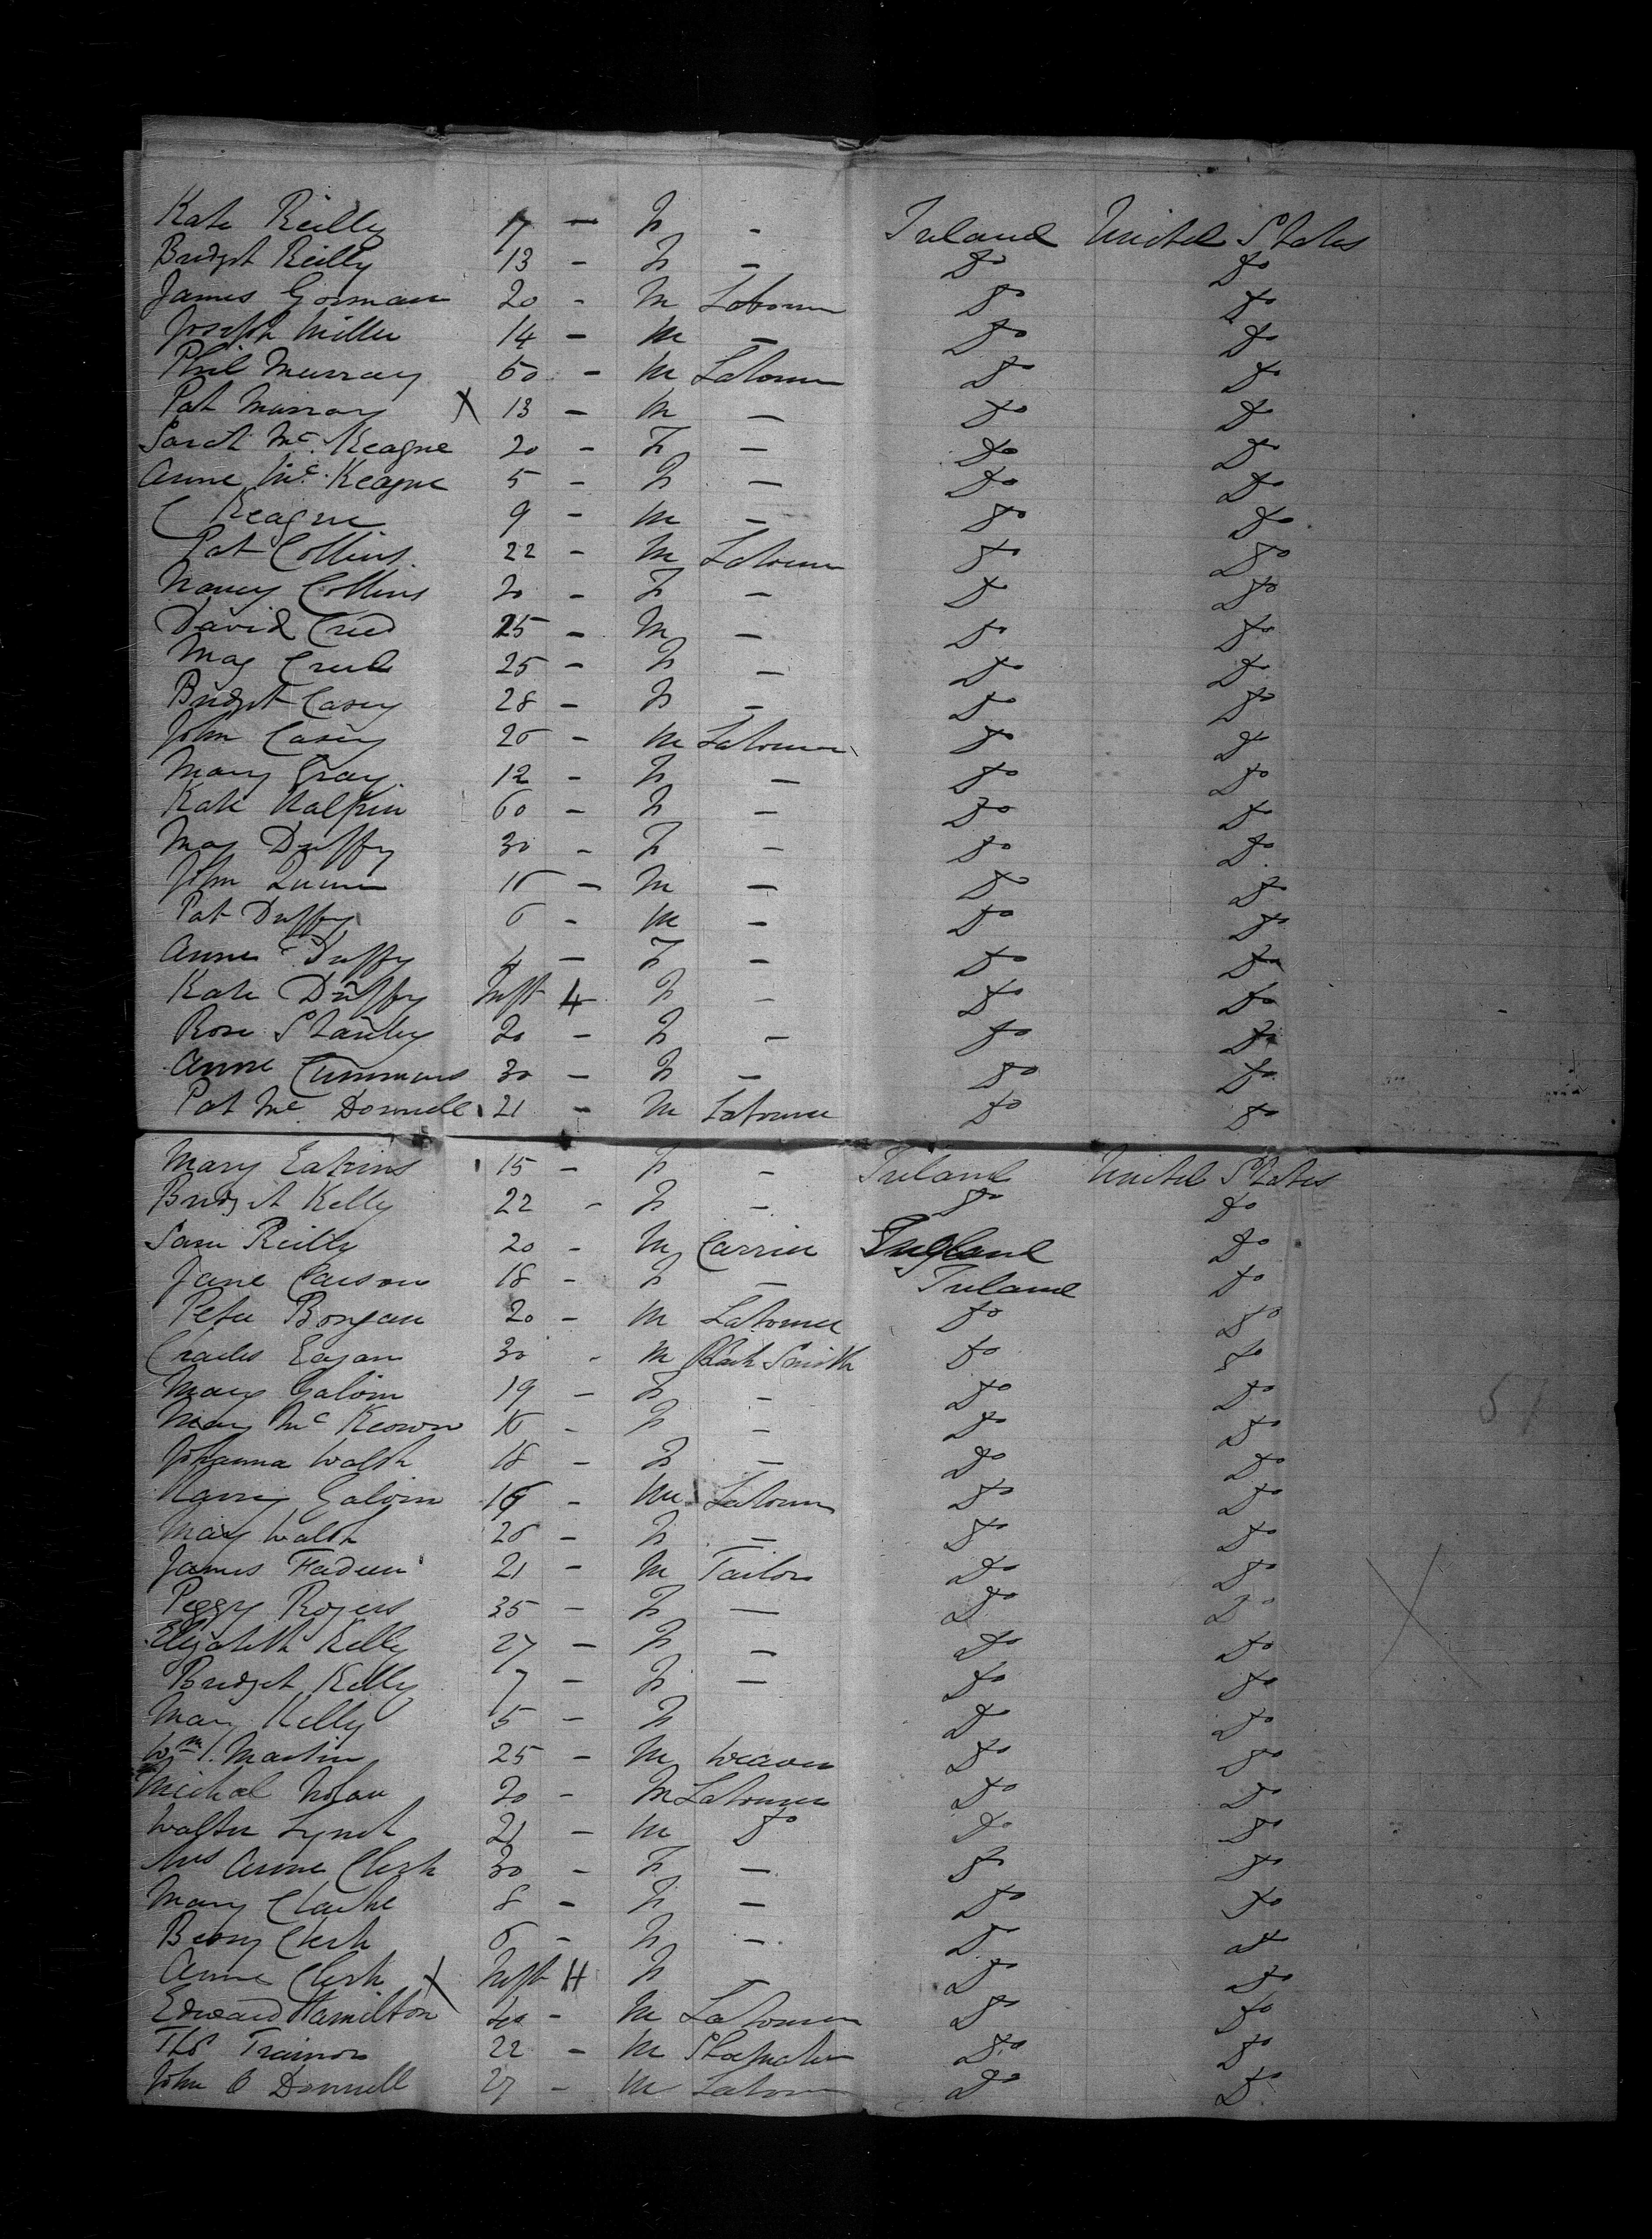 Kate Reilly 17 — F - Ireland United States
Bridget Reilly 13 - F - Do Do
James Gorman 20 - M Labourer Do Do
Joseph Miller 14 - M - Do Do
Phil Murray 50 - M Labourer Do Do
Pat Murray X 13 - M - Do Do
Sarah Mc Keague 20 - F - Do Do
Anne Mc Keague 5 - F - Do Do
C Keague 9 - M - Do Do
Pat Collins 22 - M Labourer Do Do
Nancy Collins 20 - F - Do Do
David Creed 25 - M - Do Do
Mag Creed 25 - F - Do Do
Bridget Casey 28 - F - Do Do
John Casey 26 - M Labourer Do Do
Mary Gray 12 - F - Do Do
Kate Halpin 60 - F - Do Do
Mag Duffy 30 - F - Do Do
John Quinn - M - Do Do
Pat Duffy 6 - M - Do Do
Anne Duffy 4 - F - Do Do
Kate Duffy Inft 4 F - Do Do
Rose Stanley 20 - F - Do Do
Anne Cummins 30 - F - Do Do
Pat Mc Donnell 21 - M Labourer Do Do
Mary Eakins 15 - F - Ireland United States
Bridget Kelly 22 - F - Do Do
Sam Reilly 20 - M Carrier England Do
Jane Carson 18 - F - Ireland Do
Peter Bongan 20 - M Labourer Do Do
Charles Eagan 30 - M Black Smith Do Do
Mary Galvin 19 - F - Do Do
Mary Mc Keown 16 - F - Do Do
Johanna Walsh 18 - F - Do Do
Harry Galvin 16 - M Labourer Do Do
Mary Walsh 26 - F - Do Do
James Fadeen 21 - M Tailor Do Do
Peggy Rogers 35 - F - Do Do
Elizabeth Kelly 27 - F - Do Do
Bridget Kelly 7 - F - Do Do
Mary Kelly 5 - F Do Do
Wm Martin 25 - M Weaver Do Do
Micheal Nolan 20 - M Labourer Do Do
Walter Lynch 21 - M Do Do Do
Mrs Anne Clerk 30 - F - Do Do
Mary Clarke 8 - F - Do Do
Betsy Clerk 6 - F - Do Do
Anne Clerk X Inft H F - Do Do
Edward Hamilton 40 - M Labourer Do Do
Thos Trainor 22 - M Shoemaker Do Do
John O Donnell 27 - M Labourer Do Do